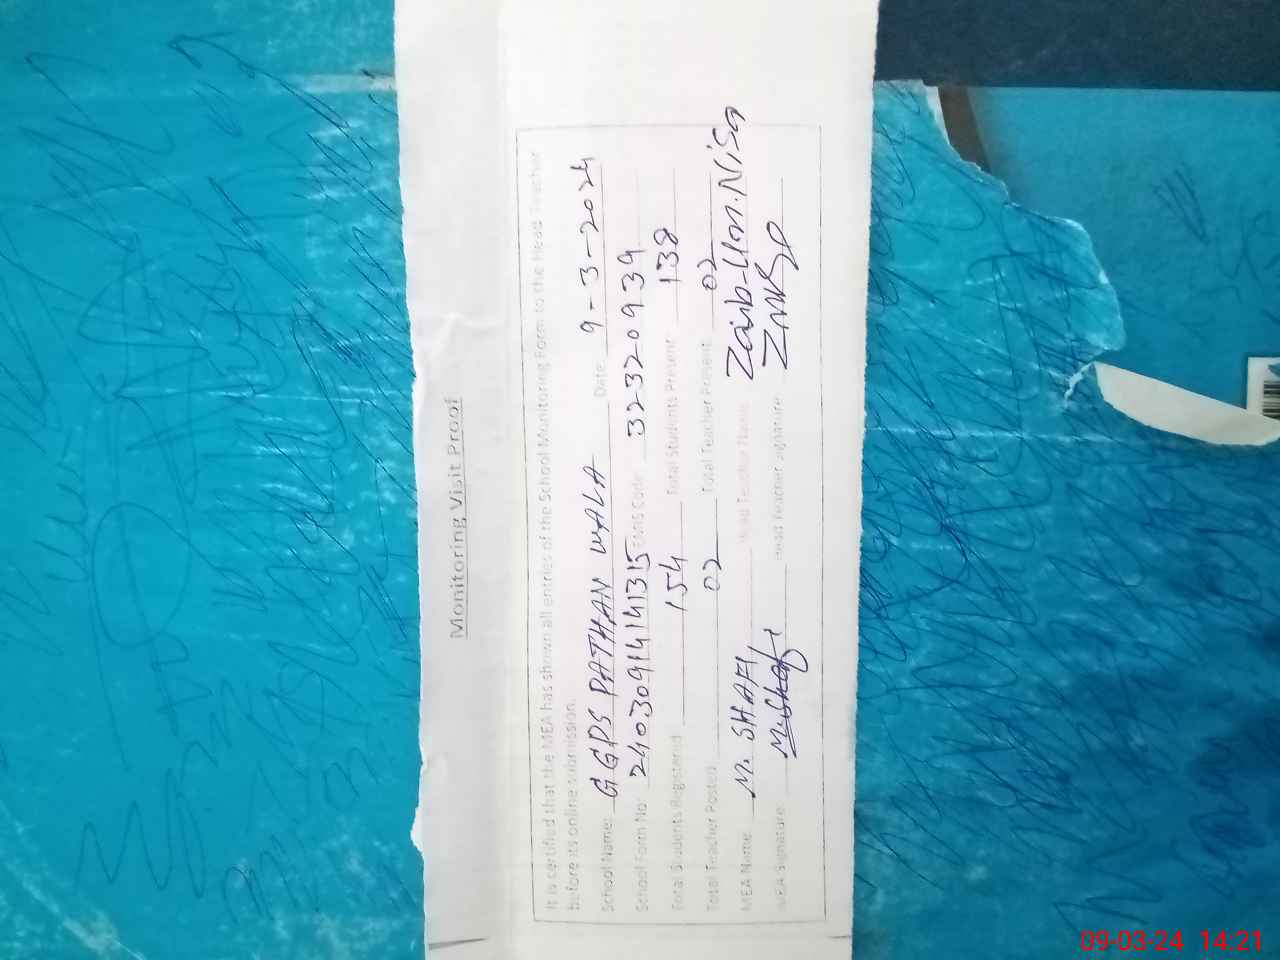 Monitoring Visit Proof
It is certified that the MEA has shown all entries of the School Monitoring Form to the Head Teacher
before its online submission.
School Name: GGPS PATHAN WALA Date: 9-3-2024
School Form No: 240309141415 EMIS Code: 32320939
Total Students Registered 154 Total Students Present: 138
Total Teacher Posted 02 Total Teacher Present: 02
MEA Name M. SHAFI Head Teacher Name Zaib-Un-Nisa
MEA Signature: M. Shafi Head Teacher Signature:
09-03-24 14:21